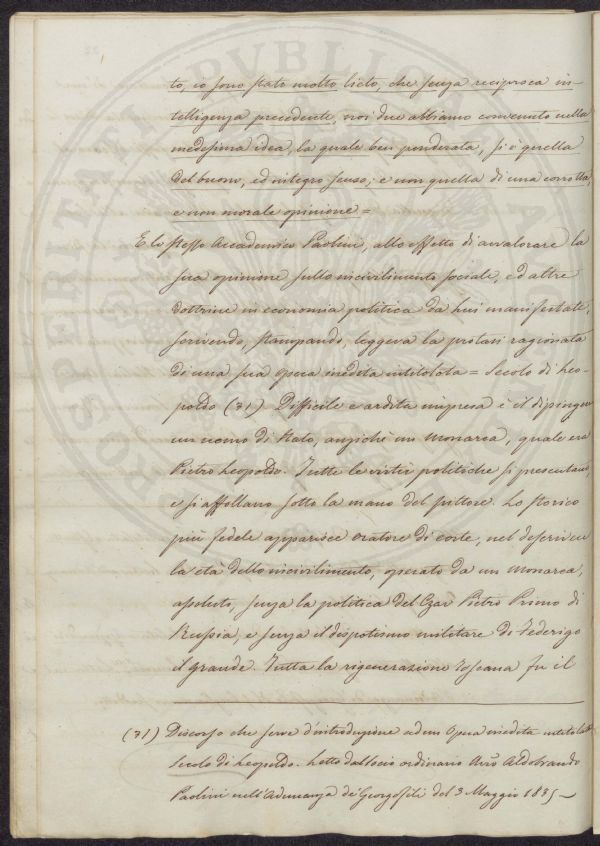 to, io sono stato molto lieto, che senza reciproca in-
telligenza precedente, noi due abbiamo convenuto nella
medesima idea, la quale ben ponderata, si è quella
del buono, ed integro senso; e non quella di una corrotta,
e non morale opinione =
E lo stesso Accademico Paolini, allo effetto di avvalorare la
sua opinione sullo incivilimento sociale, ed altre
dottrine in economia politica da lui manifestate,
scrivendo, stampando, leggeva la protasi ragionata
di una sua opera inedita intitolata = Secolo di Leo-
poldo (71) Difficile e ardita impresa è il dipinger
un uomo di Stato, anziché un Monarca, quale era
Pietro Leopoldo. Tutte le virtù politiche si presentano,
e si affollano sotto la mano del pittore. Lo storico
più fedele apparisce oratore di corte, nel descriver
la età dello incivilimento, operato da un Monarca,
assoluto, senza la politica del Czar Pietro Primo di
Russia, e senza il dispotismo militare di Federigo
il grande. Tutta la rigenerazione Toscana fu il
(71) Discorso che serve d'introduzione ad un Opera inedita intitolata
Secolo di Leopoldo. Letto dal socio ordinario Avv. Aldobrando
Paolini nell'Adunanza de' Georgofili del 3 Maggio 1835 —
PROSPERITATI PUBLICAE